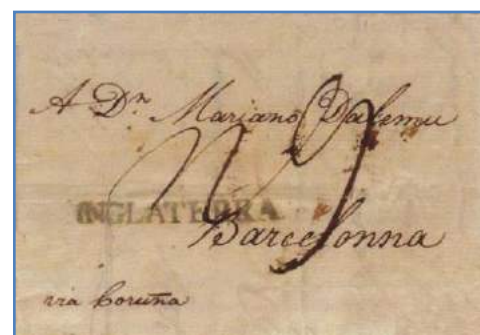 A Dn Mariano Dalemu
INGLATERRA
Barcelonna
via Coruña